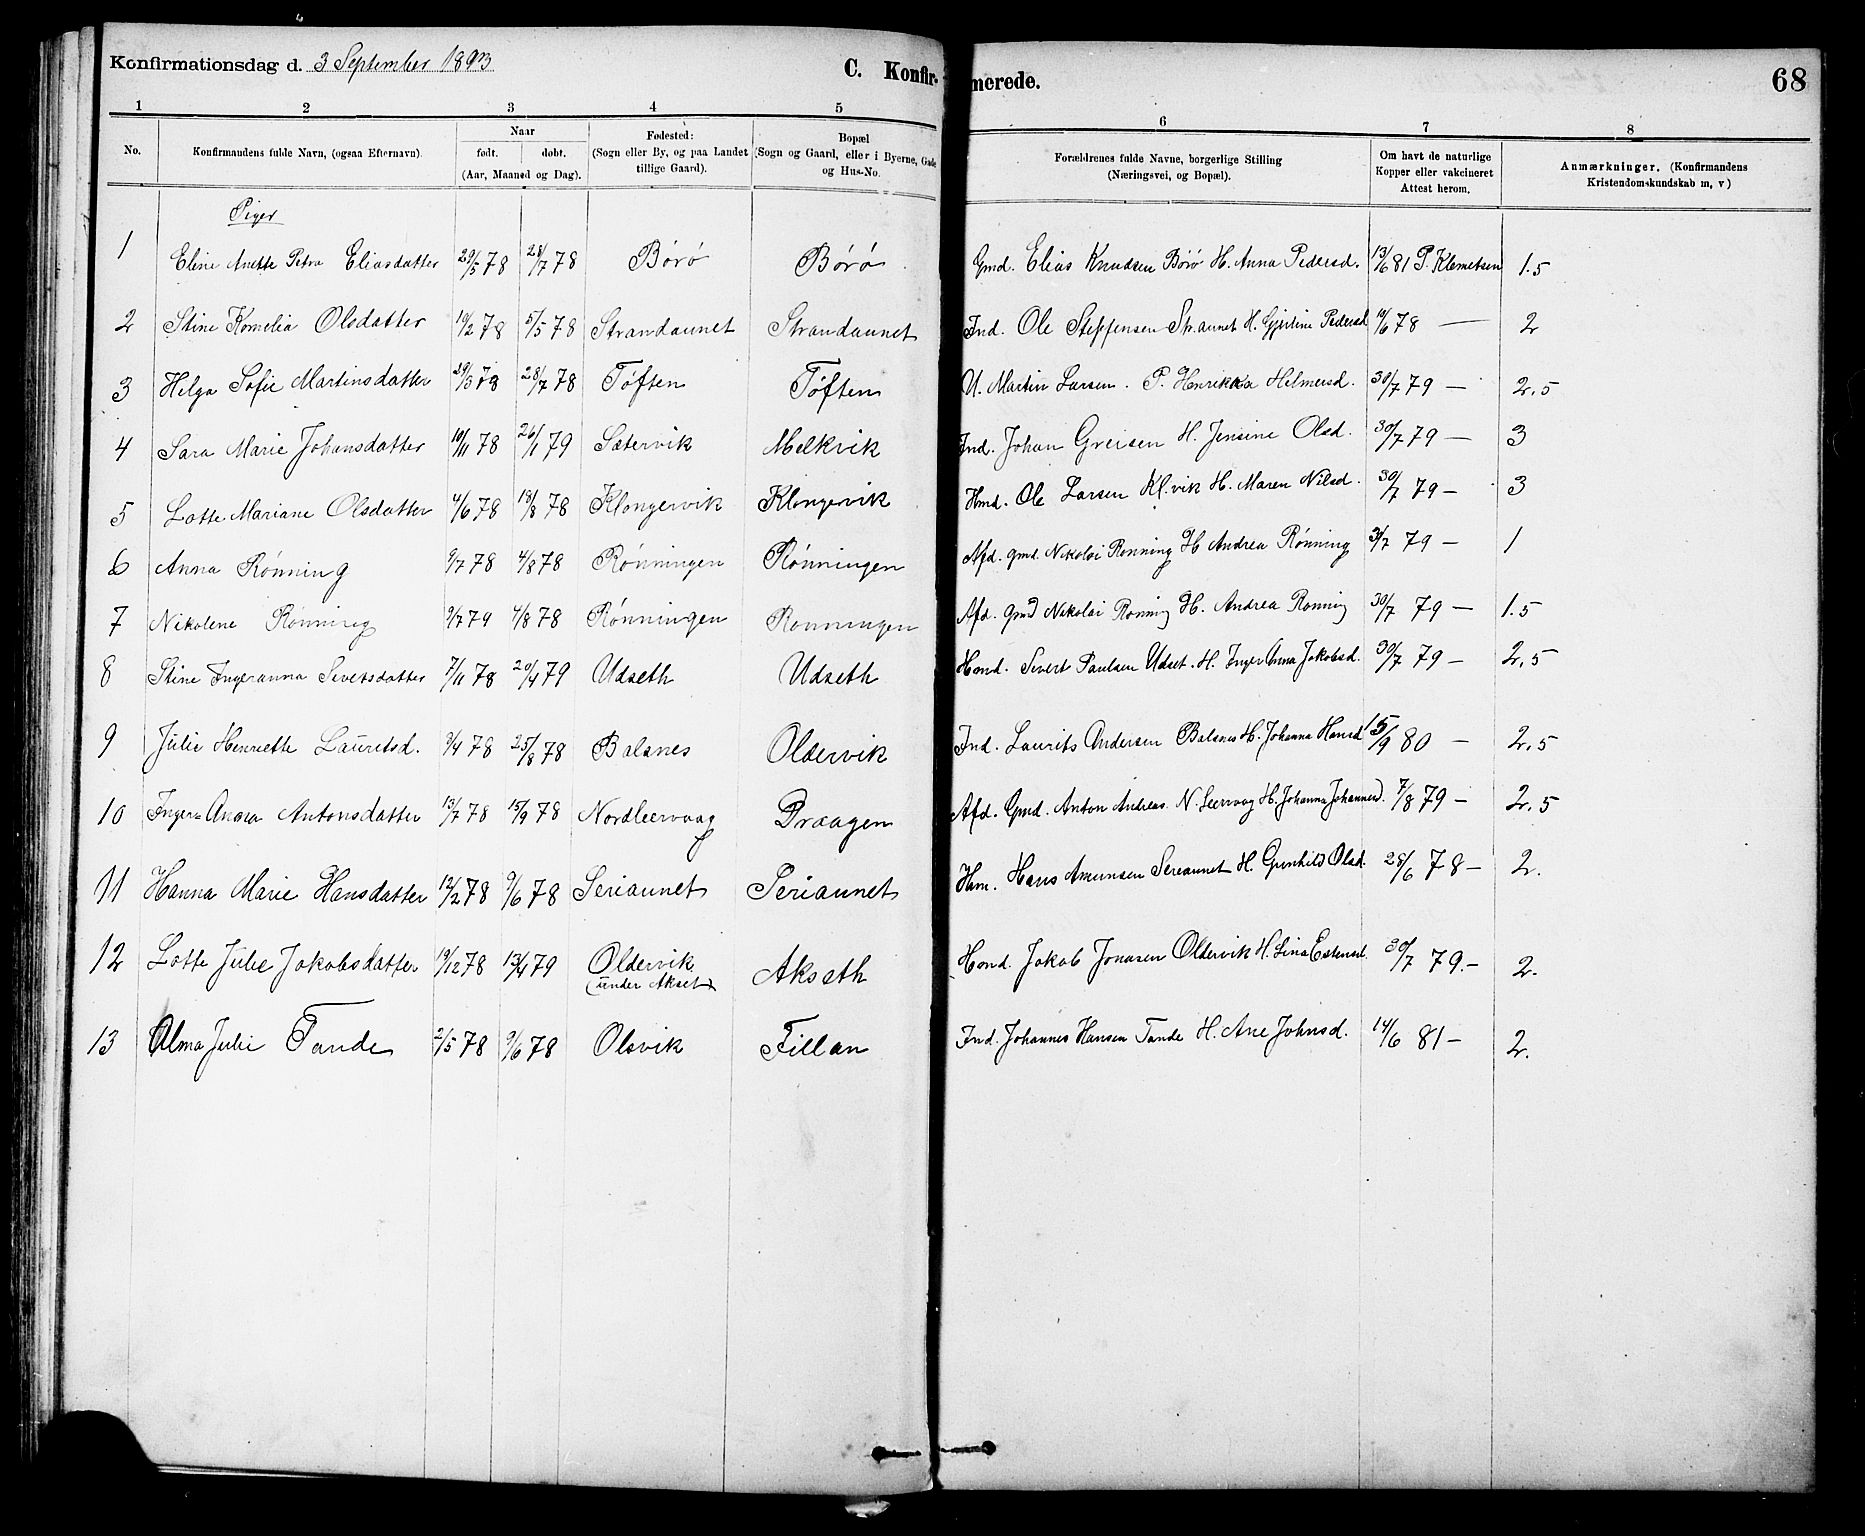 Konfirmationsdag d. 3 September 1893 C. Konfir- merede. 68
1 2 3 4 5 6 7 8
No. Konfirmandens fulde Navn, (ogsaa Efternavn). Naar født. døbt. (Aar, Maaned og Dag). Fødested: (Sogn eller By, og paa Landet tillige Gaard). Bopæl (Sogn og Gaard, eller i Byerne, Gade og Hus-No. Forældrenes fulde Navne, borgerlige Stilling (Næringsvei, og Bopæl). Om havt de naturlige Kopper eller vakcineret Attest herom. Anmærkninger. (Konfirmandens Kristendomskundskab m, v)
Piger
1 Eline Anette Petra Eliasdatter 29/5 78 28/7 78 Börö Börö Gmd. Elias Knudsen Börö H. Anna Pedersd. 13/6 81 P. Klemetsen 1.5
2 Stine Kornelia Olsdatter 10/2 78 5/5 78 Strandaunet Strandaunet Ind. Ole Steffensen Str.aunet H. Gjertine Pedersd 10/6 78 — 2
3 Helga Sofie Martinsdatter 29/3 78 28/7 78 Töften Töften U. Martin Larsen. P. Henrikka Helmersd. 30/7 79 — 2.5
4 Sara Marie Johansdatter 10/11 78 26/1 79 Sætervik Melkvik Ind. Johan Greisen H. Jensine Olsd. 30/7 79 — 3
5 Lotte Mariane Olsdatter 4/6 78 18/8 78 Klongervik Klongervik Hmd. Ole Larsen Kl.vik H. Maren Nilsd. 30/7 79 — 3
6 Anna Rönning 9/7 78 4/8 78 Rönningen Rönningen Afd. gmd. Nikolai Rönning H Andrea Rönning 31/7 79 — 1
7 Nikolene Rönning 9/7 79 4/8 78 Rönningen Ronningen Afd. gmd Nikolai Ronning H. Andrea Ronning 30/7 79 — 1.5
8 Stine Ingeranna Sivertsdatter 7/11 78 20/4 79 Udseth Udseth Hmd. Sivert Paulsen Udset. H. Inger Anna Jakobsd. 30/7 79 — 2.5
9 Julie Henriette Lauritsd. 9/4 78 25/8 78 Balsnes Oldervik Ind. Laurits Andersen Balsnes H. Johanna Hansd 15/9 80 — 2.5
10 Inger Anna Antonsdatter 13/7 78 15/9 78 Nordleervaag Draagen Afd. Gmd. Anton Andreas. N. Leervaag H. Johanna Johannesd. 7/8 79 — 2.5
11 Hanna Marie Hansdatter 12/2 78 9/6 78 Seriaunet Seriaunet Hm. Hans Amunsen Sereaunet H. Gunhild Olsd. 28/6 78 — 2.
12 Lotte Julie Jakobsdatter 19/12 78 13/4 79 Oldervik (under Akset) Akseth Hmd. Jakob Jonasen Oldervik H. Lina Estensd. 30/7 79. — 2.
13 Alma Julie Tande 2/5 78 9/6 78 Olsvik Fillan Ind. Johannes Hansen Tande H. Ane Johnsd. 14/6 81 — 2.